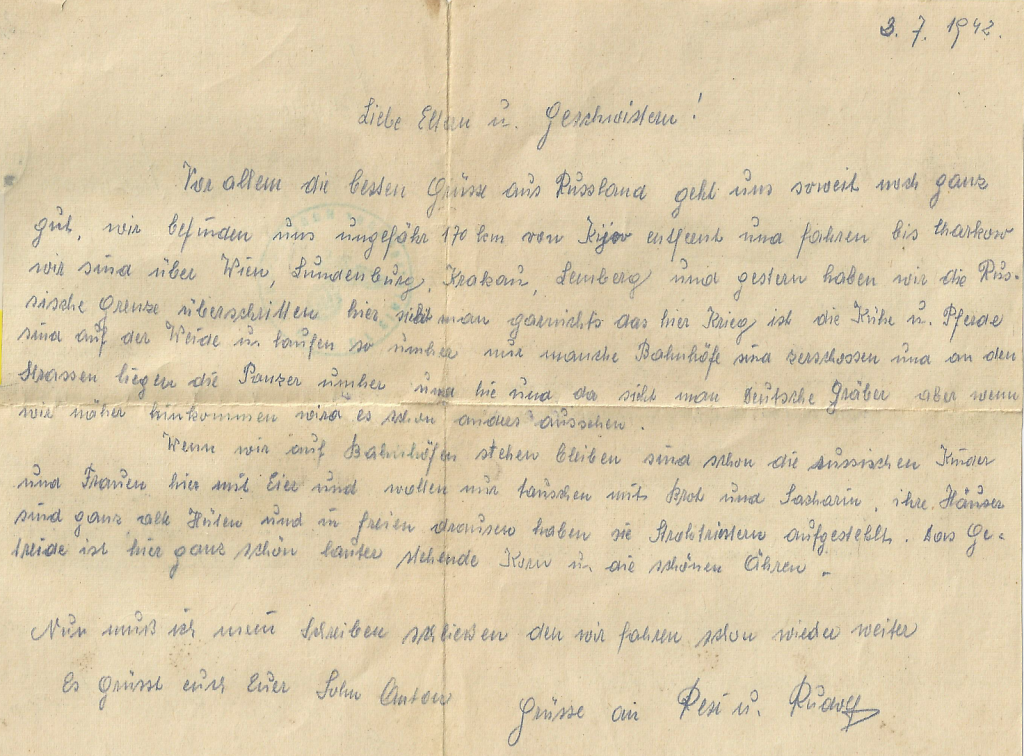 3. 7. 1942.
Liebe Eltern u. Geschwistern!
Vor allem die besten Grüsse aus Russland geht uns soweit noch ganz
gut, wir befinden uns ungefähr 170 km von Kijov entfernt und fahren bis Charkow
wir sind über Wien, Lundenburg, Krakau, Lemberg und gestern haben wir die Rus-
sische Grenze überschritten hier sieht man garnichts das hier Krieg ist die Kühe u. Pferde
sind auf der Weide u. laufen so umher nur manche Bahnhöfe sind zerschossen und an den
Strassen liegen die Panzer umher und hie und da sieht man Deutsche Gräber aber wenn
wir näher hinkommen wird es schon anders aussehen.
Wenn wir auf Bahnhöfen stehen bleiben sind schon die russischen Kinder
und Frauen hier mit Eier und wollen nur tauschen mit Brot und Sacharin, ihre Häuser
sind ganz alte Hüten und in freien draussen haben sie Strohtristern aufgestehlt. Das Ge-
treide ist hier ganz schön lauter stehende Korn u. die schönen Ähren.
Nun muß ich mein Schreiben schließen den wir fahren schon wieder weiter
Es Grüsst euch Euer Sohn Anton
Grüsse an Resi u. Rudolf